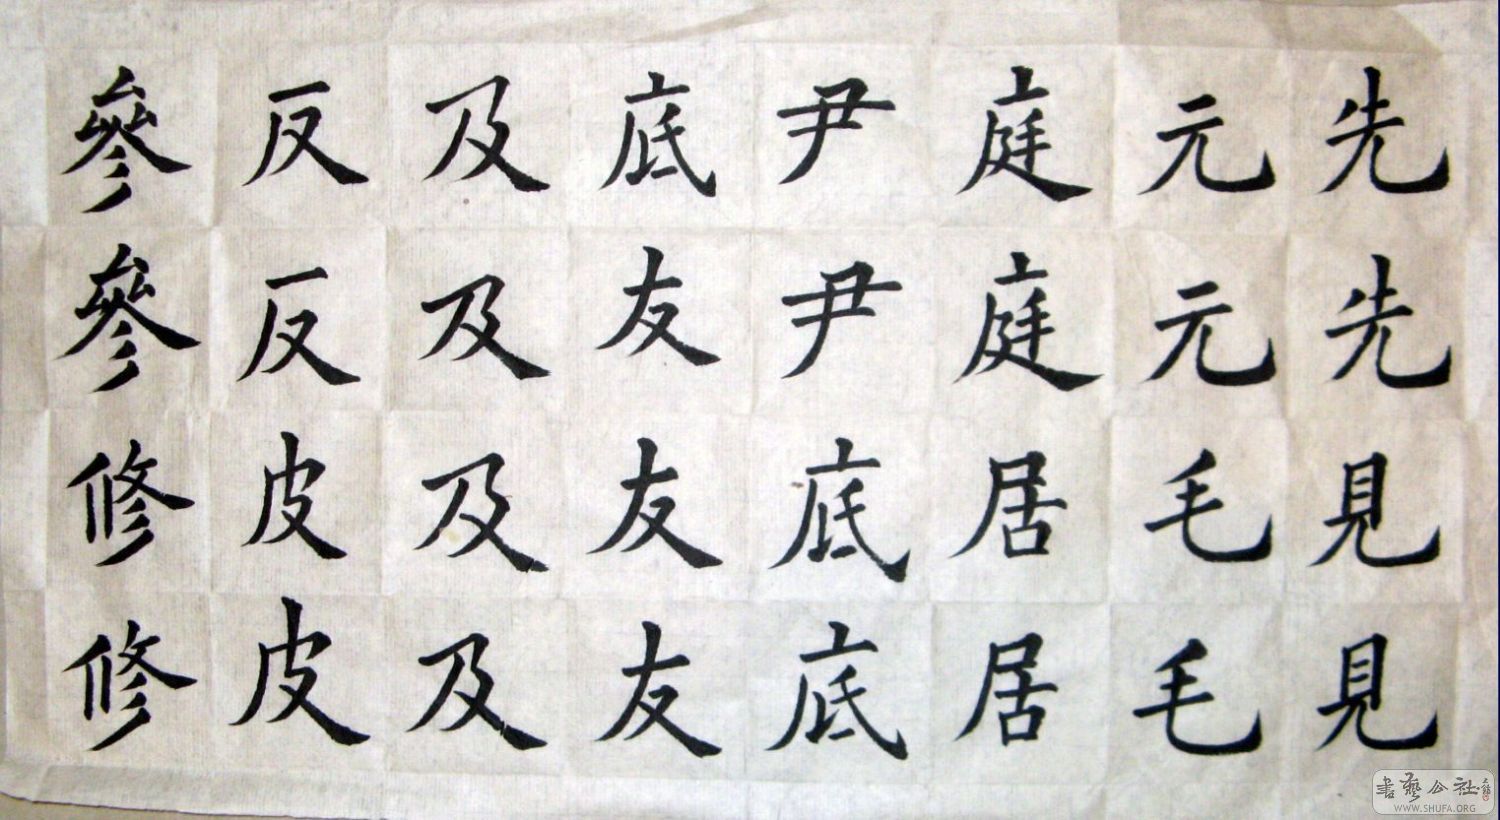 先先見見
元元毛毛
庭庭居居
尹尹底底
底友友友
及及及及
反反皮皮
參參修修
書藝公社
WWW.SHUFA.ORG